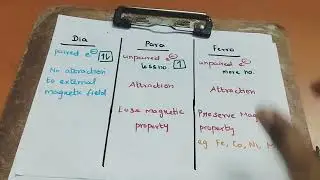 Dia
paired e⊖ 1L
No attraction
to external
magnetic field
Para
unpaired e⊖
less no. 1
Attraction
Loss magnetic
property
Ferro
unpaired e⊖
more no.
Attraction
Preserve Mag
property
eg Fe, Co, Ni,